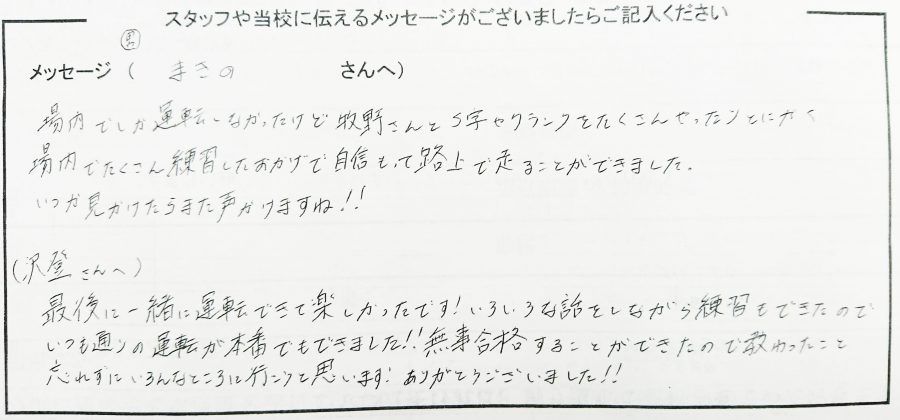 スタッフや当校に伝えるメッセージがございましたらご記入ください
メッセージ ( まきの さんへ)
場内でしか運転しなかったけど牧野さんとS字やクランクをたくさんやったりとにかく
場内でたくさん練習したおかげで自信もって路上で走ることができました.
いつか見かけたらまた声かけますね!!
(沢登さんへ)
最後に一緒に運転できて楽しかったです!いろいろな話をしながら練習もできたので
いつも通りの運転が本番でもできました!!無事合格することができたので教わったこと
忘れずにいろんなところに行こうと思います!ありがとうございました!!